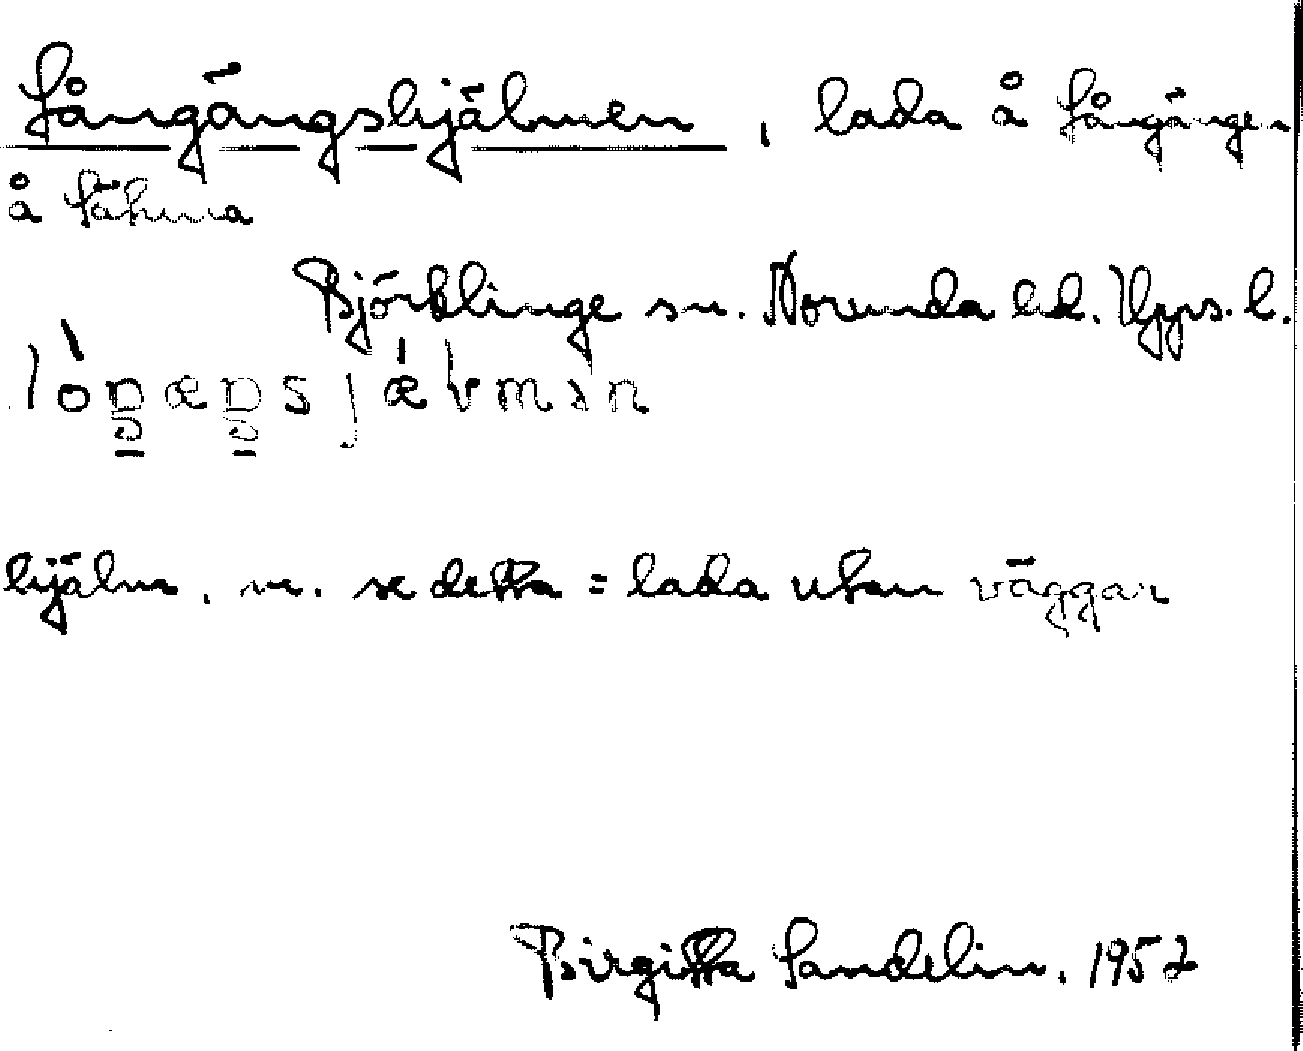 Långängshjälmen, lada å Långängen
å Sätuna
Björklinge sn. Norunda hd. Upps. l.
hjälm. m. se detta = lada utan väggar
Birgitta Sandelin. 1952